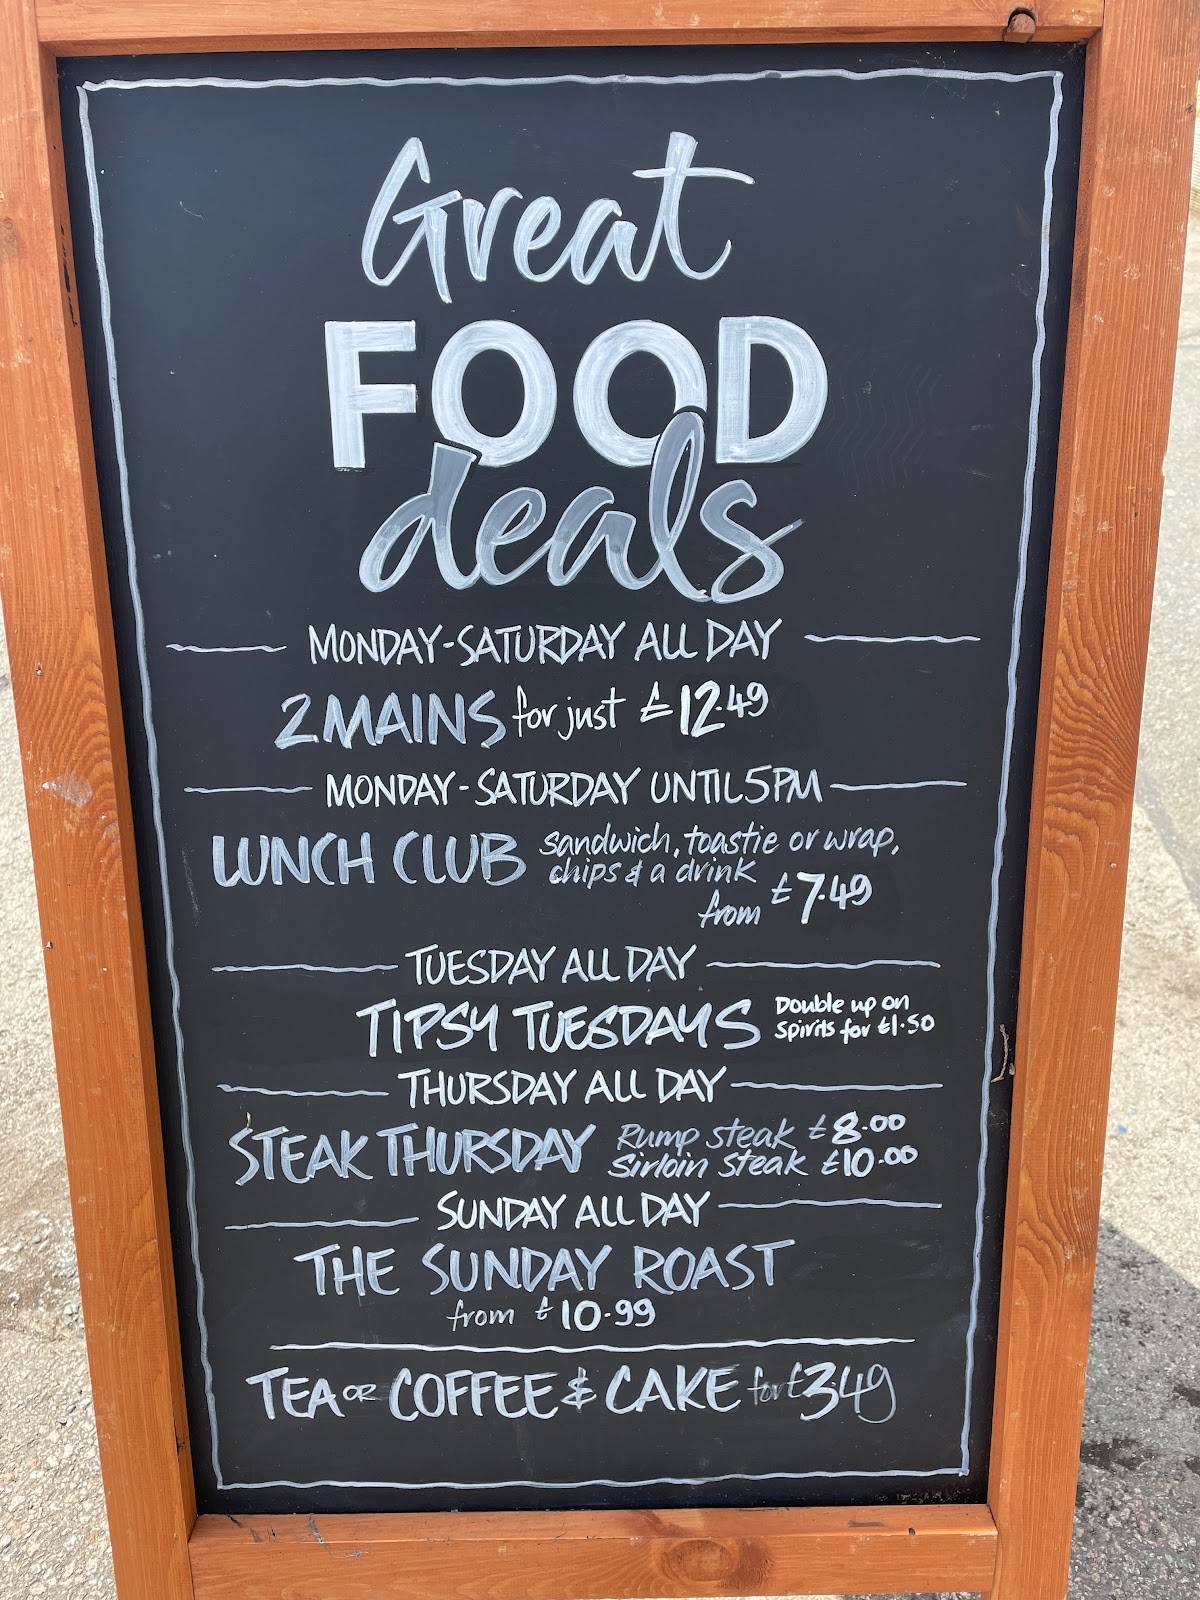 Great
FOOD
deals
MONDAY-SATURDAY ALL DAY
2 MAINS for just £12.49
MONDAY-SATURDAY UNTIL 5PM
LUNCH CLUB sandwich, toastie or wrap,
chips & a drink
from £7.49
TUESDAY ALL DAY
TIPSY TUESDAYS Double up on
spirits for £1.50
THURSDAY ALL DAY
STEAK THURSDAY Rump steak £8.00
Sirloin steak £10.00
SUNDAY ALL DAY
THE SUNDAY ROAST
from £10.99
TEA OR COFFEE & CAKE for £3.49